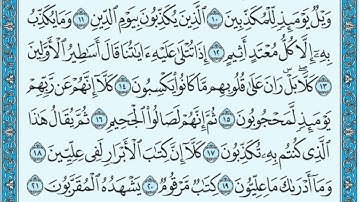 وَيْلٌ يَوْمَئِذٍ لِّلْمُكَذِّبِينَ ١٠ ٱلَّذِينَ يُكَذِّبُونَ بِيَوْمِ ٱلدِّينِ ١١ وَمَا يُكَذِّبُ
بِهِۦٓ إِلَّا كُلُّ مُعْتَدٍ أَثِيمٍ ١٢ إِذَا تُتْلَىٰ عَلَيْهِ ءَايَٰتُنَا قَالَ أَسَٰطِيرُ ٱلْأَوَّلِينَ
١٣ كَلَّا ۖ بَلْ ۜ رَانَ عَلَىٰ قُلُوبِهِم مَّا كَانُوا۟ يَكْسِبُونَ ١٤ كَلَّآ إِنَّهُمْ عَن رَّبِّهِمْ
يَوْمَئِذٍ لَّمَحْجُوبُونَ ١٥ ثُمَّ إِنَّهُمْ لَصَالُوا۟ ٱلْجَحِيمِ ١٦ ثُمَّ يُقَالُ هَٰذَا
ٱلَّذِى كُنتُم بِهِۦ تُكَذِّبُونَ ١٧ كَلَّآ إِنَّ كِتَٰبَ ٱلْأَبْرَارِ لَفِى عِلِّيِّينَ ١٨
وَمَآ أَدْرَىٰكَ مَا عِلِّيُّونَ ١٩ كِتَٰبٌ مَّرْقُومٌ ٢٠ يَشْهَدُهُ ٱلْمُقَرَّبُونَ ٢١